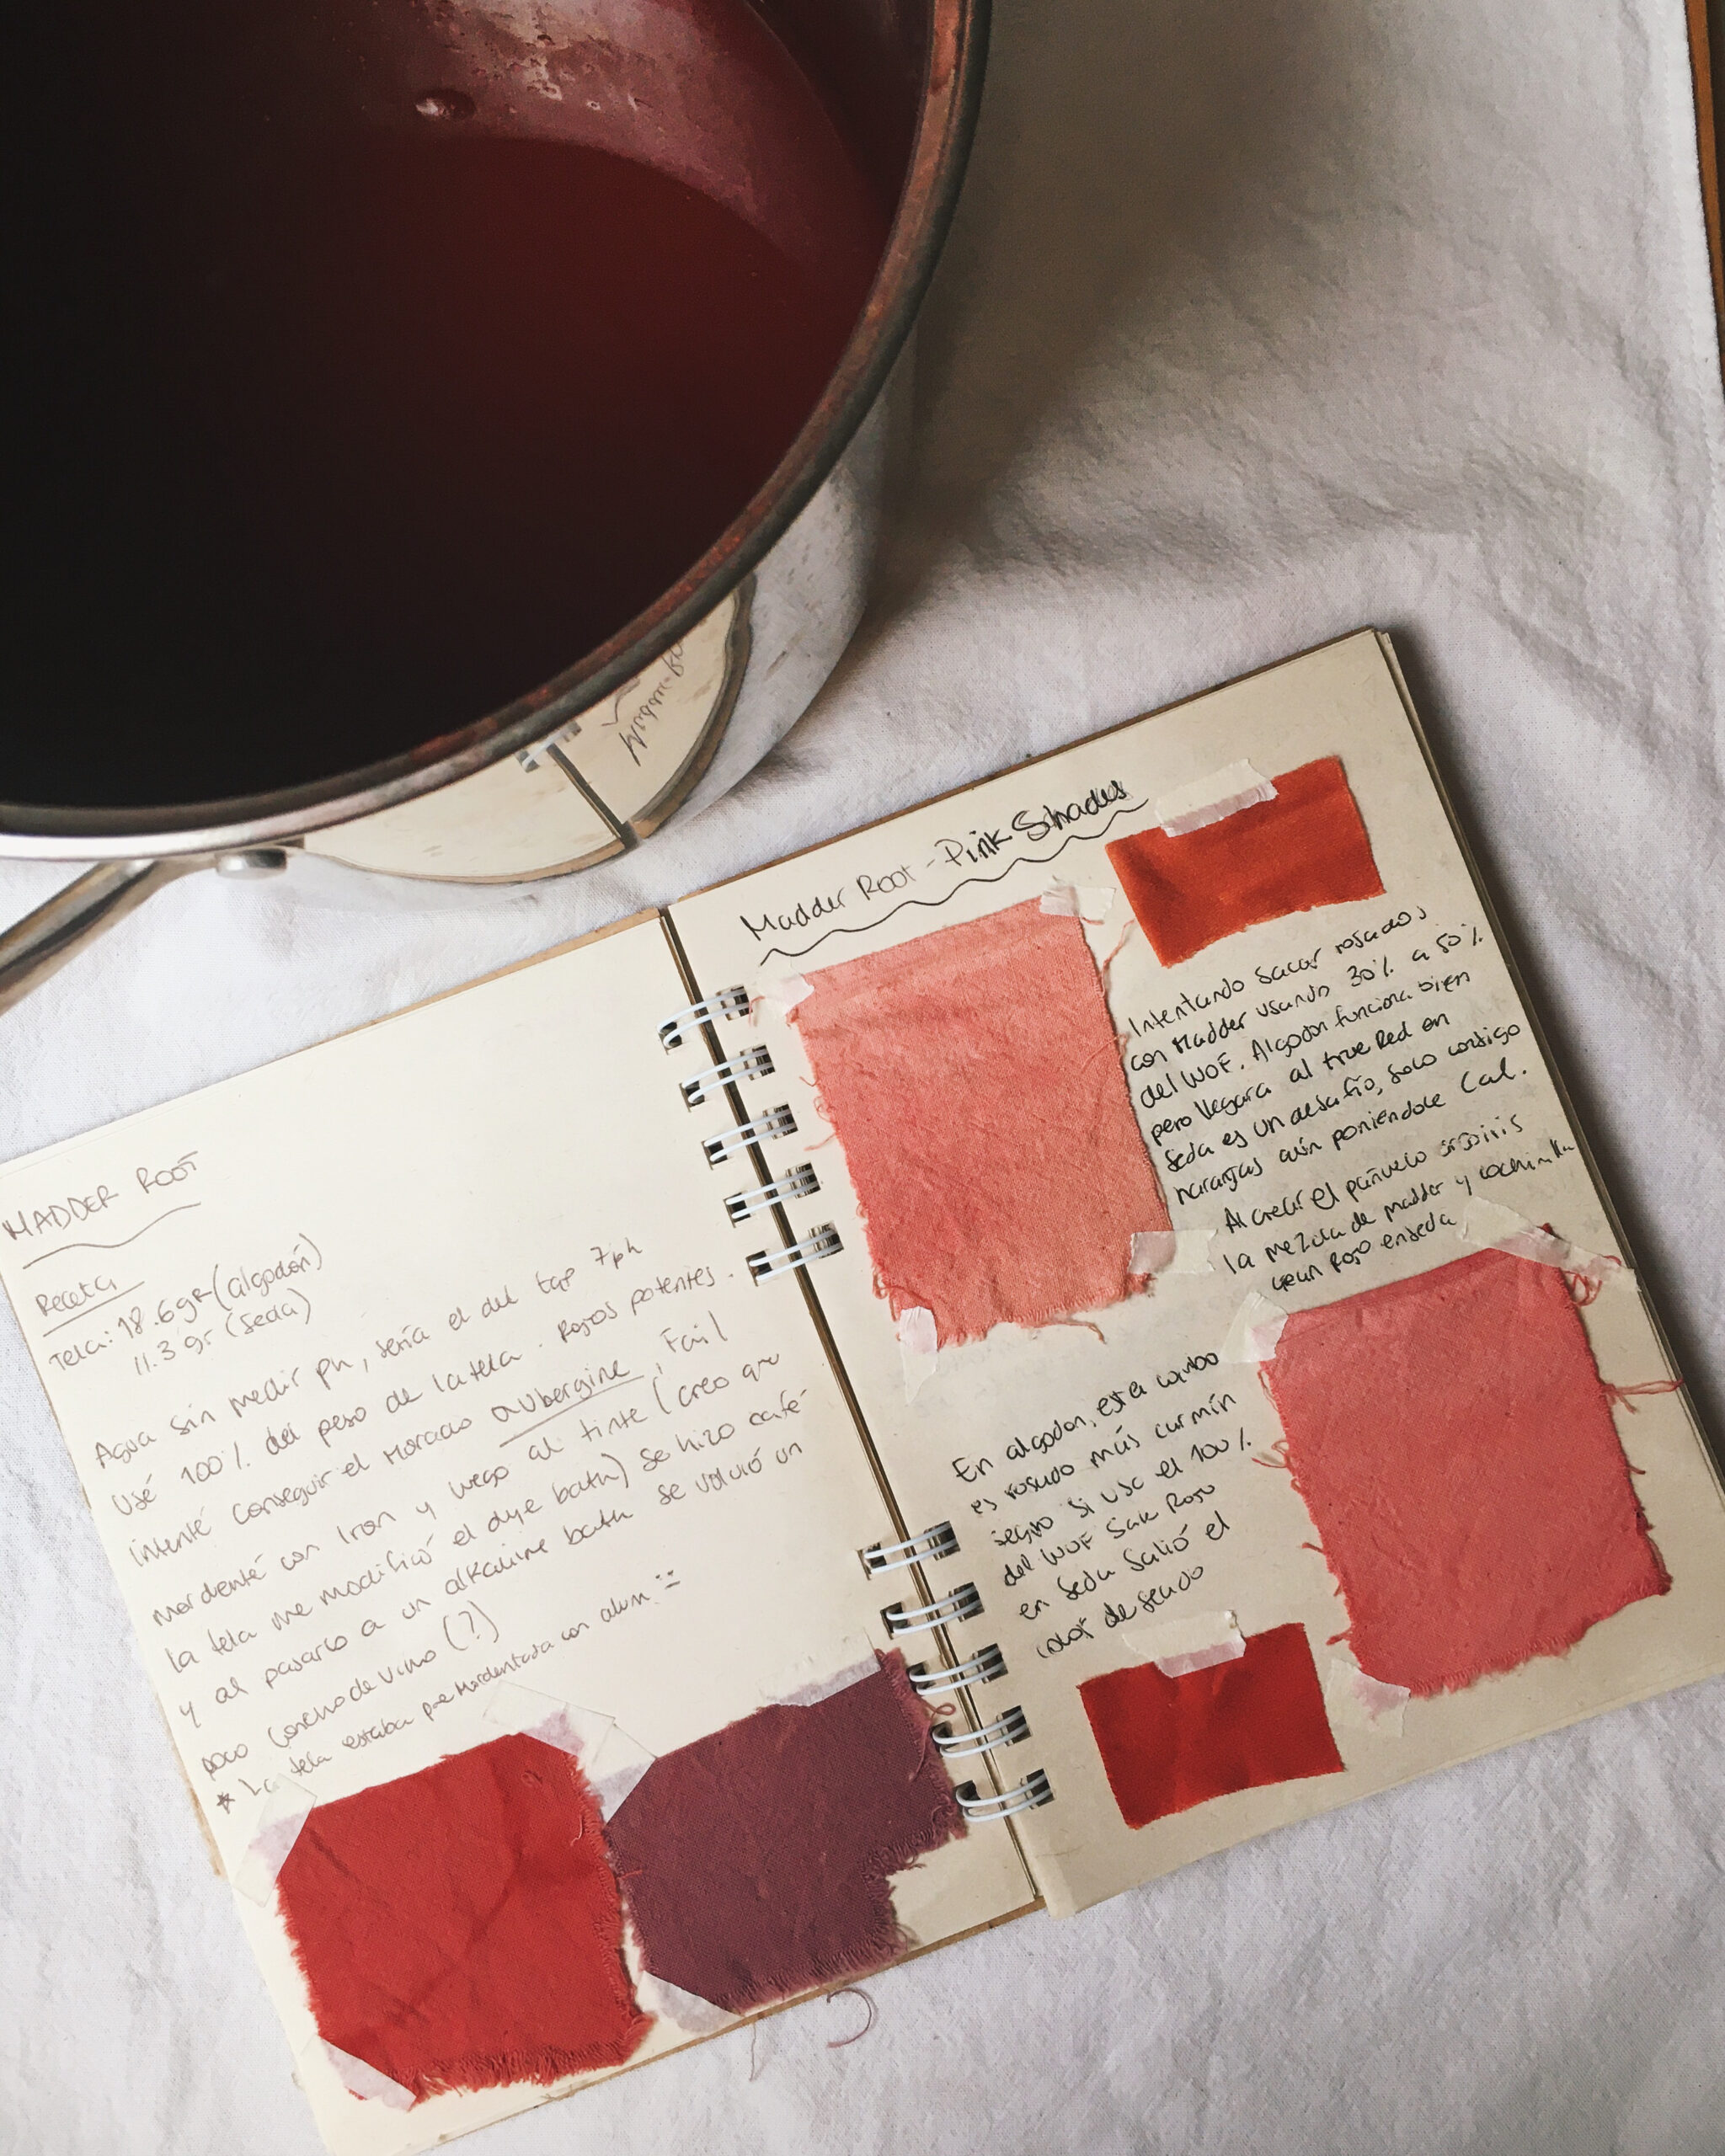 MADDER ROOT
Receta
Tela: 18.6gr (algodón)
11.3 gr (seda)
Agua sin medir ph, sería el del tap 7ph
Usé 100% del peso de la tela. Rojos potentes.
Intenté conseguir el morado aubergine, Fail
mordenté con Iron y luego al tinte (creo que
la tela me modificó el dye bath) se hizo café
y al pasarlo a un alkaline bath se volvió un
poco concho de vino (?)
* La tela estaba pre mordentada con alum
Madder Root - Pink Shades
Intentando sacar rosados
con Madder usando 30% a 50%
del WOF. Algodon funciona bien
pero llegara al true Red en
Seda es un desafío, solo consigo
naranjas aún poniendole Cal.
Al crear el pañuelo
la mezcla de madder y cochinilla
Rojo en seda
En algodon, este combo
es rosado más carmín
seguro si uso el 100%
del WOF sale Rojo
en Seda salió el
color deseado